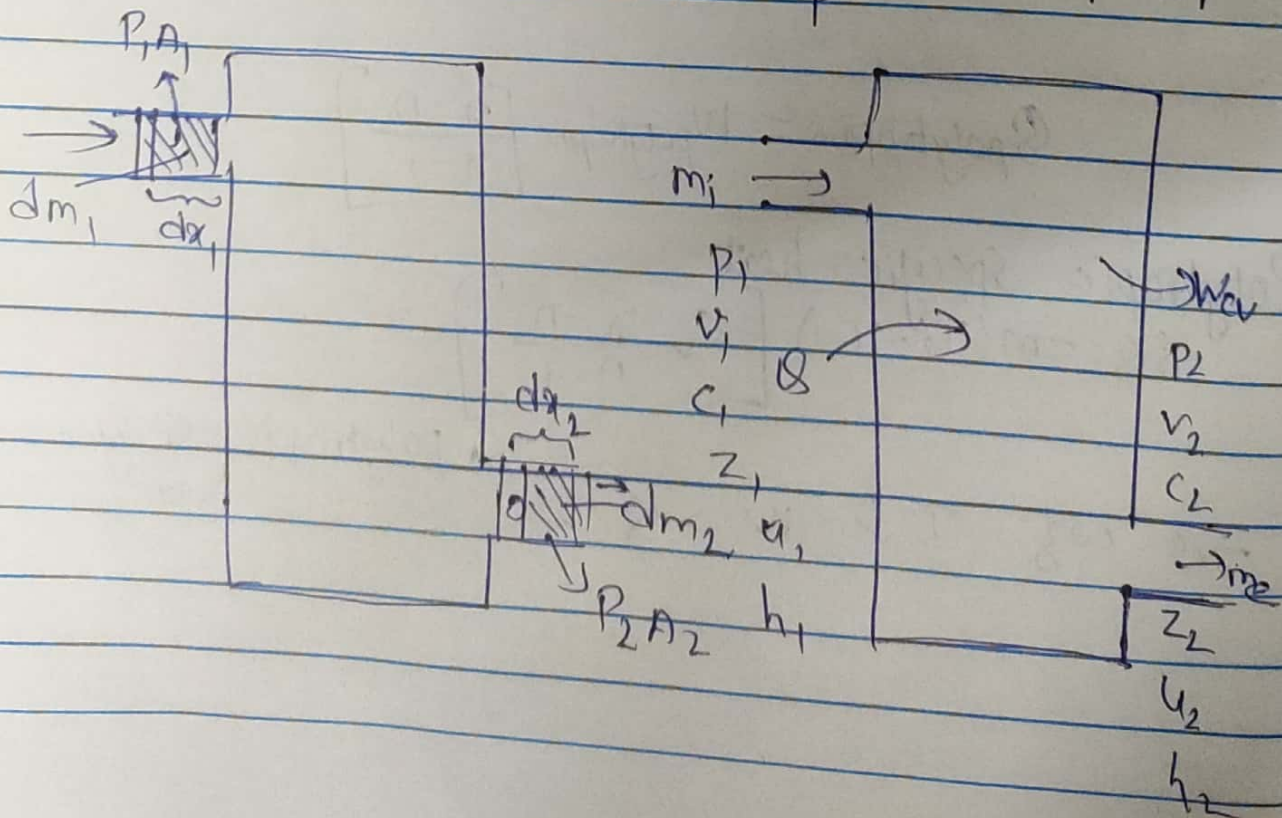 P₁A₁
dm₁
dx₁
dx₂
dm₂
P₂A₂
mᵢ
P₁
v₁
C₁
Z₁
u₁
h₁
Q
Wcv
P₂
v₂
C₂
ṁe
Z₂
u₂
h₂